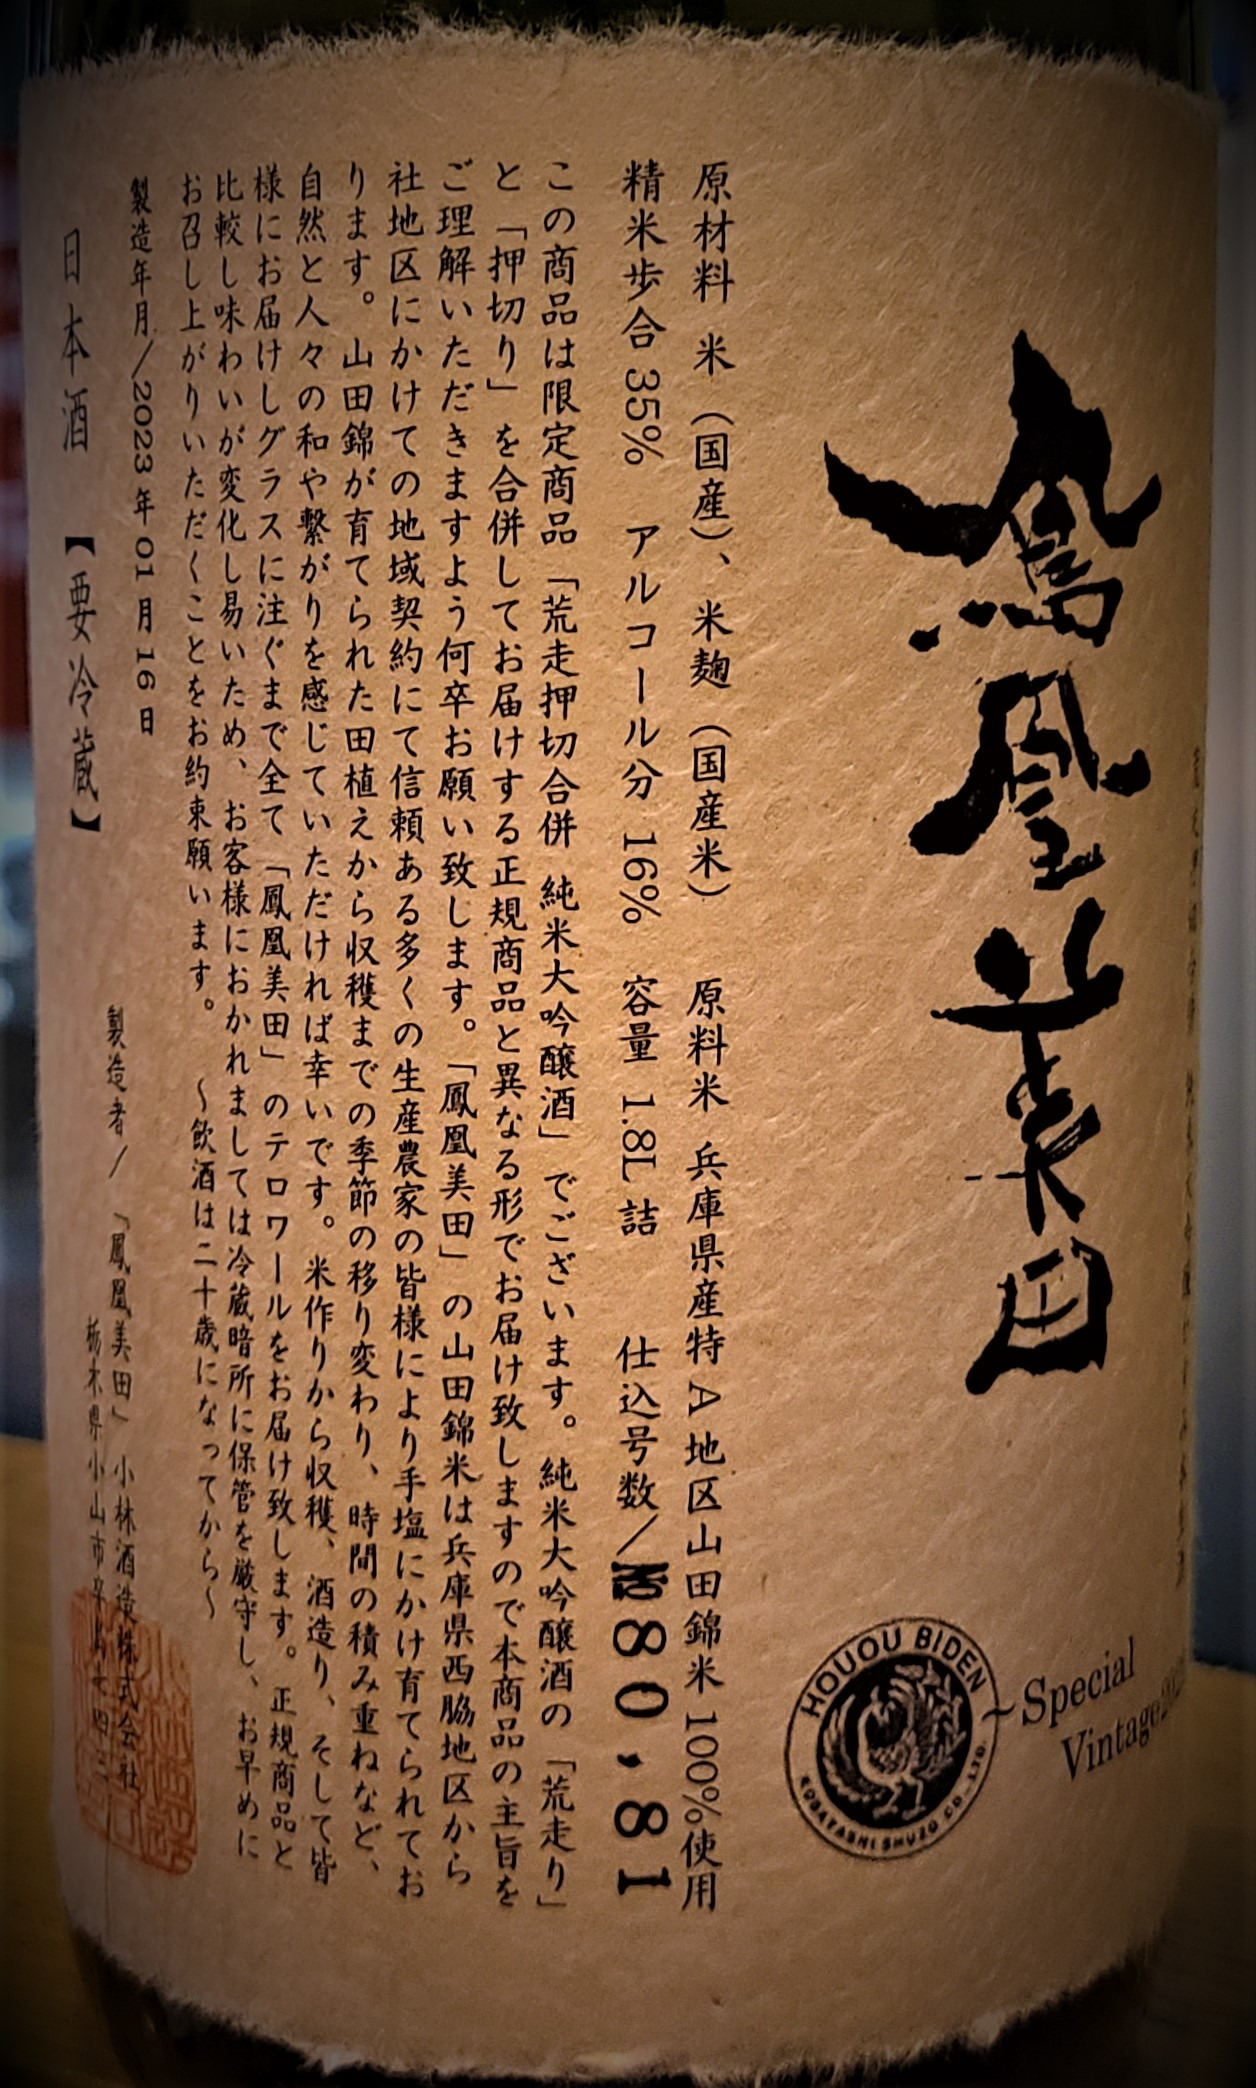 鳳凰美田
HOUOU BIDEN
KOBAYASHI SHUZO CO., LTD.
~Special
Vintage
原材料 米（国産）、米麹（国産米） 原料米 兵庫県産特A地区山田錦米100%使用
精米歩合35% アルコール分 16% 容量 1.8L詰 仕込号数／№80,81
この商品は限定商品「荒走押切合併 純米大吟醸酒」でございます。純米大吟醸酒の「荒走り」
と「押切り」を合併してお届けする正規商品と異なる形でお届け致しますので本商品の主旨を
ご理解いただきますよう何卒お願い致します。「鳳凰美田」の山田錦米は兵庫県西脇地区から
社地区にかけての地域契約にて信頼ある多くの生産農家の皆様により手塩にかけ育てられてお
ります。山田錦が育てられた田植えから収穫までの季節の移り変わり、時間の積み重ねなど、
自然と人々の和や繋がりを感じていただければ幸いです。米作りから収穫、酒造り、そして皆
様にお届けしグラスに注ぐまで全て「鳳凰美田」のテロワールをお届け致します。正規商品と
比較し味わいが変化し易いため、お客様におかれましては冷蔵暗所に保管を厳守し、お早めに
お召し上がりいただくことをお約束願います。 ～飲酒は二十歳になってから～
製造年月／2023年01月16日
製造者／「鳳凰美田」小林酒造株式会社
栃木県小山市卒島
日本酒 【要冷蔵】